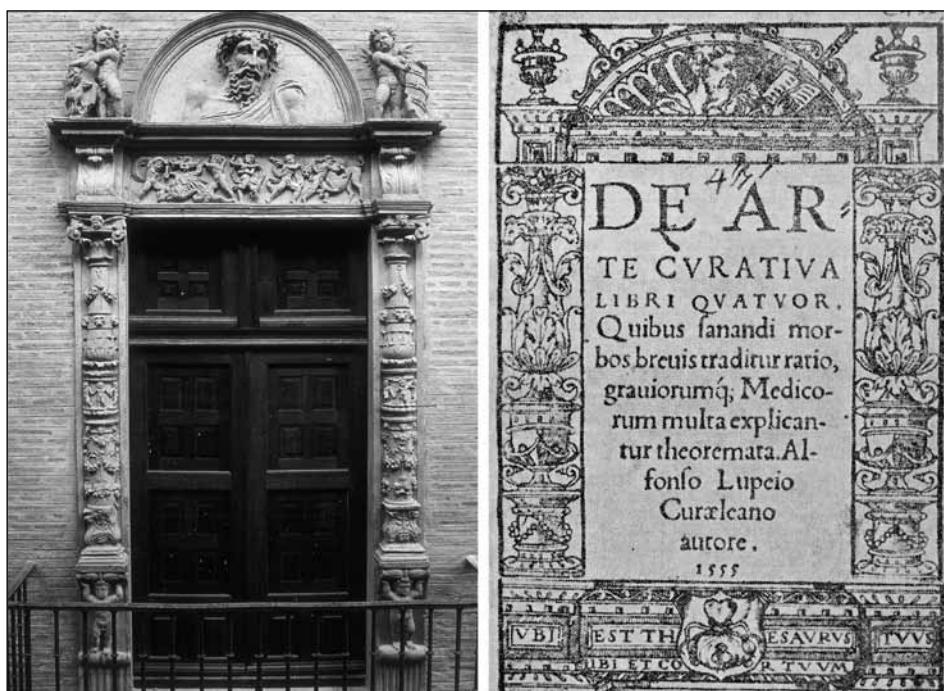 DE AR-
TE CVRATIVA
LIBRI QVATVOR.
Quibus ſanandi mor-
bos breuis traditur ratio,
grauiorumq́; Medico-
rum multa explican-
tur theoremata. Al-
fonſo Lupeio
Curæleano
autore.
1555
VBI EST TH ESAVRVS TVVS
IBI ET CO R TVVM